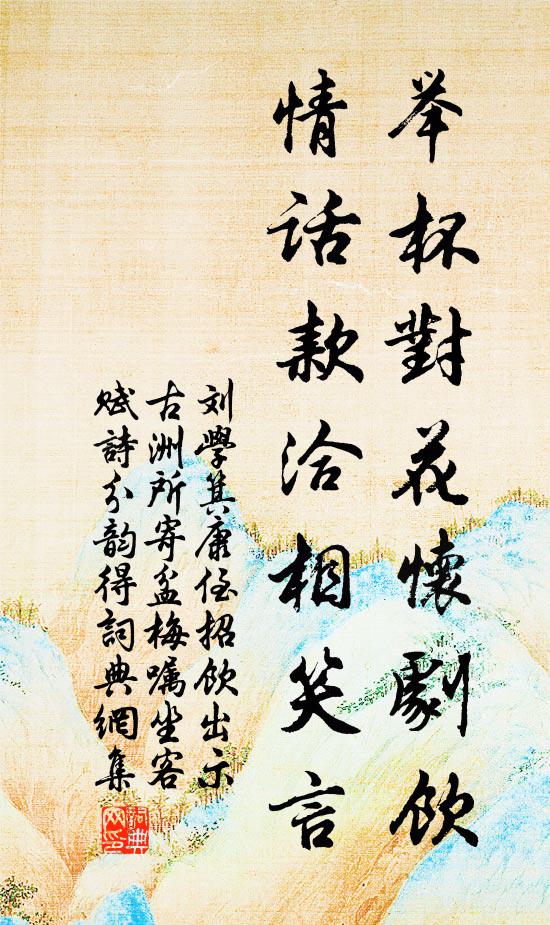 举杯對花懷劇飲
情话款洽相笑言
刘學箕康侄招飲出示
古洲所寄盆梅嘱坐客
赋詩分韵得詞典網集